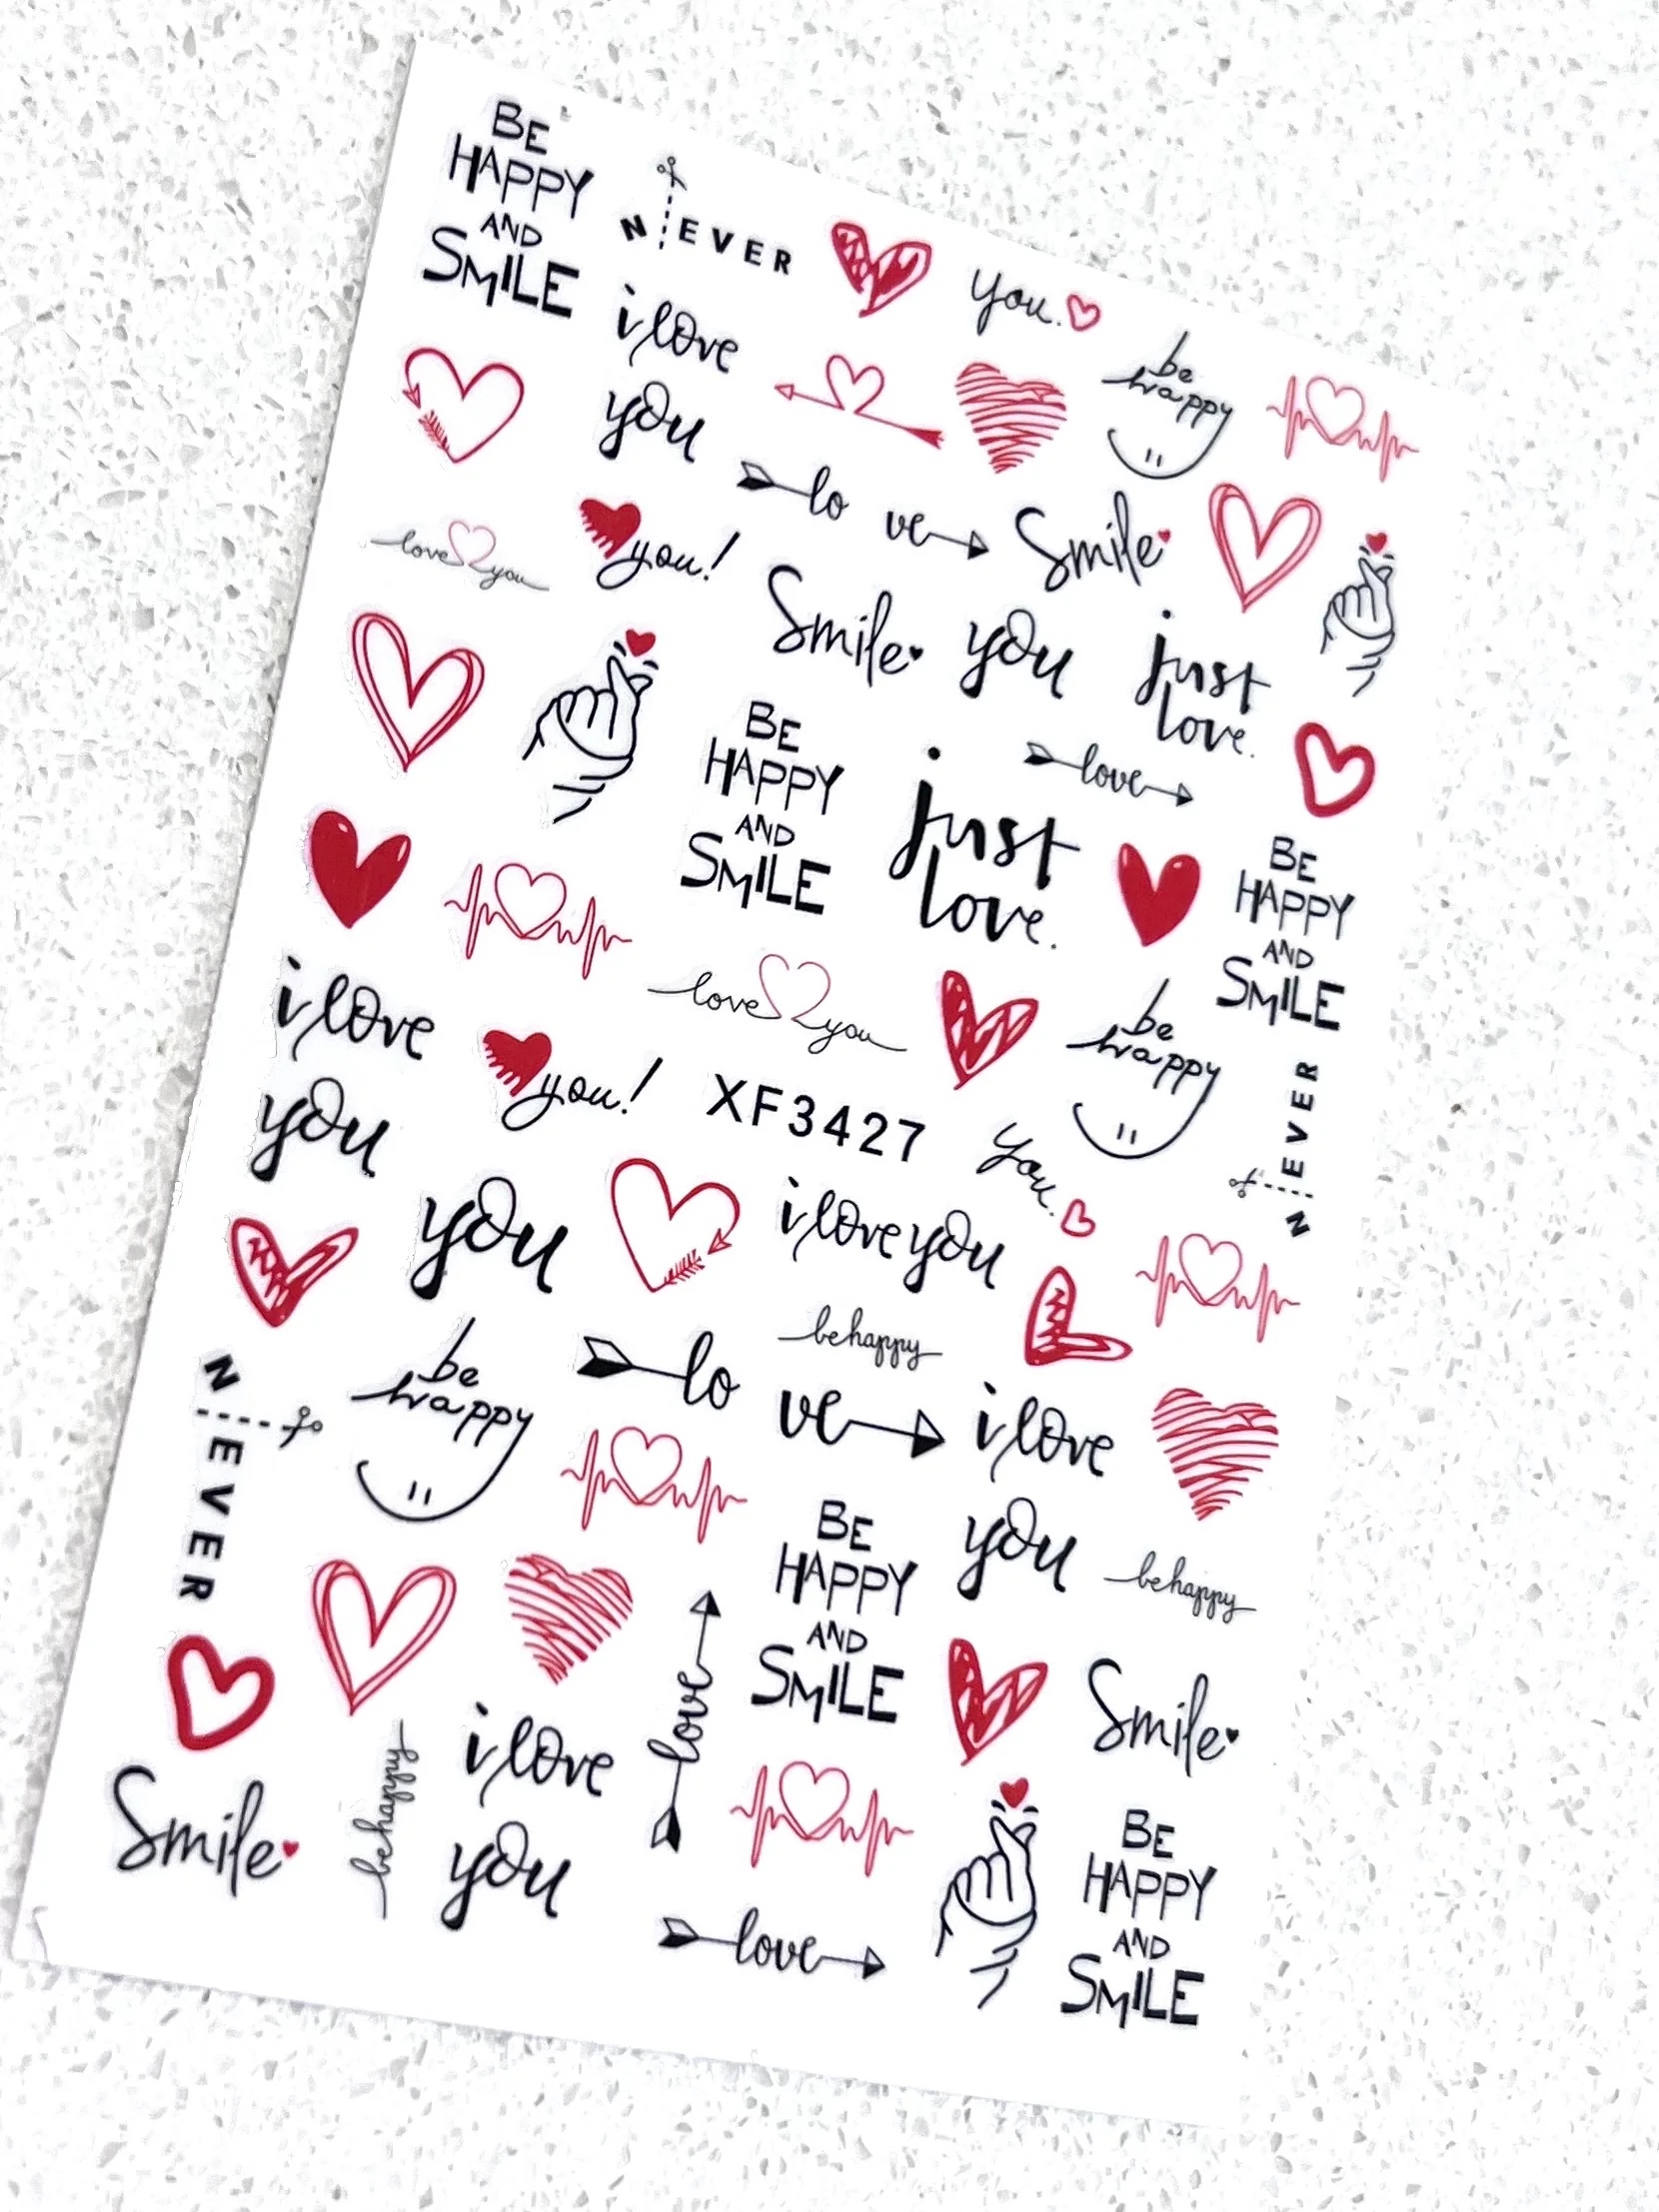 BE
HAPPY
AND
SMILE
N EVER
you.
i love
you
be
happy
lo ve
Smile
love you
you!
Smile
you
just
love.
love
BE
HAPPY
AND
SMILE
just
love.
BE
HAPPY
AND
SMILE
i love
you
love you
be
happy
you!
XF3427
you.
N EVER
you
i love you
be happy
N EVER
be
happy
lo ve
i love
you
be happy
BE
HAPPY
AND
SMILE
love
Smile
Smile
be happy
i love
you
love
BE
HAPPY
AND
SMILE